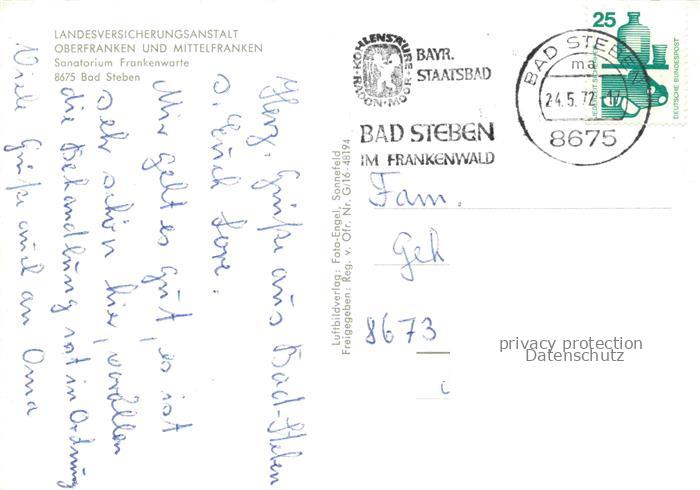 LANDESVERSICHERUNGSANSTALT
OBERFRANKEN UND MITTELFRANKEN
Sanatorium Frankenwarte
8675 Bad Steben
Herz. Grüße aus Bad-Steben
s. Euch
Mir geht es gut, es ist
sehr schön hier,
die Behandlung ist in Ordnung
Viele Grüße auch an Oma
Luftbildverlag: Foto-Engel, Sonnefeld
Freigegeben: Reg. v. Ofr. Nr. G/16-48194
KOHLENSÄURE
RADON·MOOR
BAYR.
STAATSBAD
BAD STEBEN
IM FRANKENWALD
BAD STEBEN
ma
24.5.72
8675
25
DEUTSCHE BUNDESPOST
Fam.
Geh
8673
privacy protection
Datenschutz